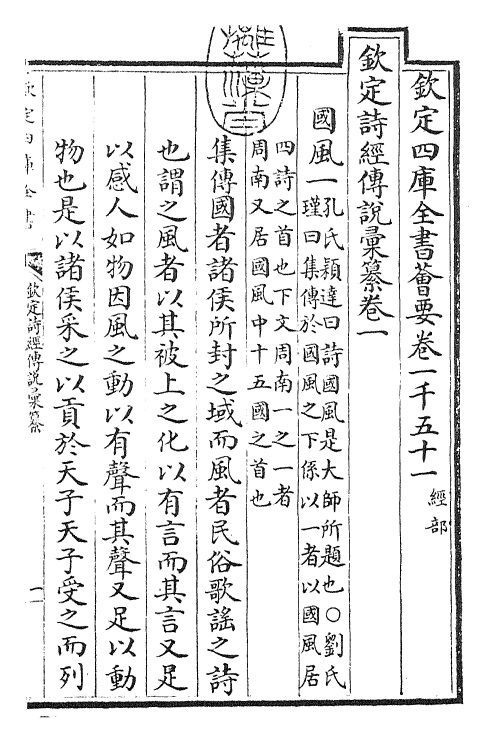 欽定四庫全書薈要卷一千五十一 經部
欽定詩經傳說彙纂卷一
國風一孔氏穎達曰詩國風是大師所題也○劉氏
瑾曰集傳於國風之下係以一者以國風居
四詩之首也下文周南一之一者
周南又居國風中十五國之首也
集傳國者諸侯所封之域而風者民俗歌謠之詩
也謂之風者以其被上之化以有言而其言又足
以感人如物因風之動以有聲而其聲又足以動
物也是以諸侯采之以貢於天子天子受之而列
欽定四庫全書
欽定詩經傳說彙纂
一